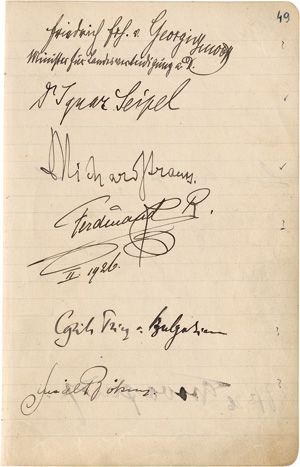 49
Friedrich Frh. v. Georgi
Minister für Landesverteidigung a. D.
Dr Ignaz Seipel
Richard Strauss
Ferdinand R.
II 1926.
Cyrill Prinz v. Bulgarien